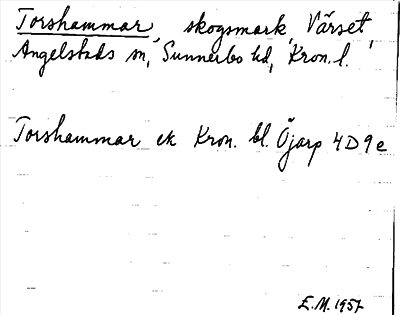 Torshammar, skogsmark, Värset,
Angelstads sn, Sunnerbo hd, Kron. l.
Torshammar ek Kron. bl. Öjarp 4D9e
E.M. 1957